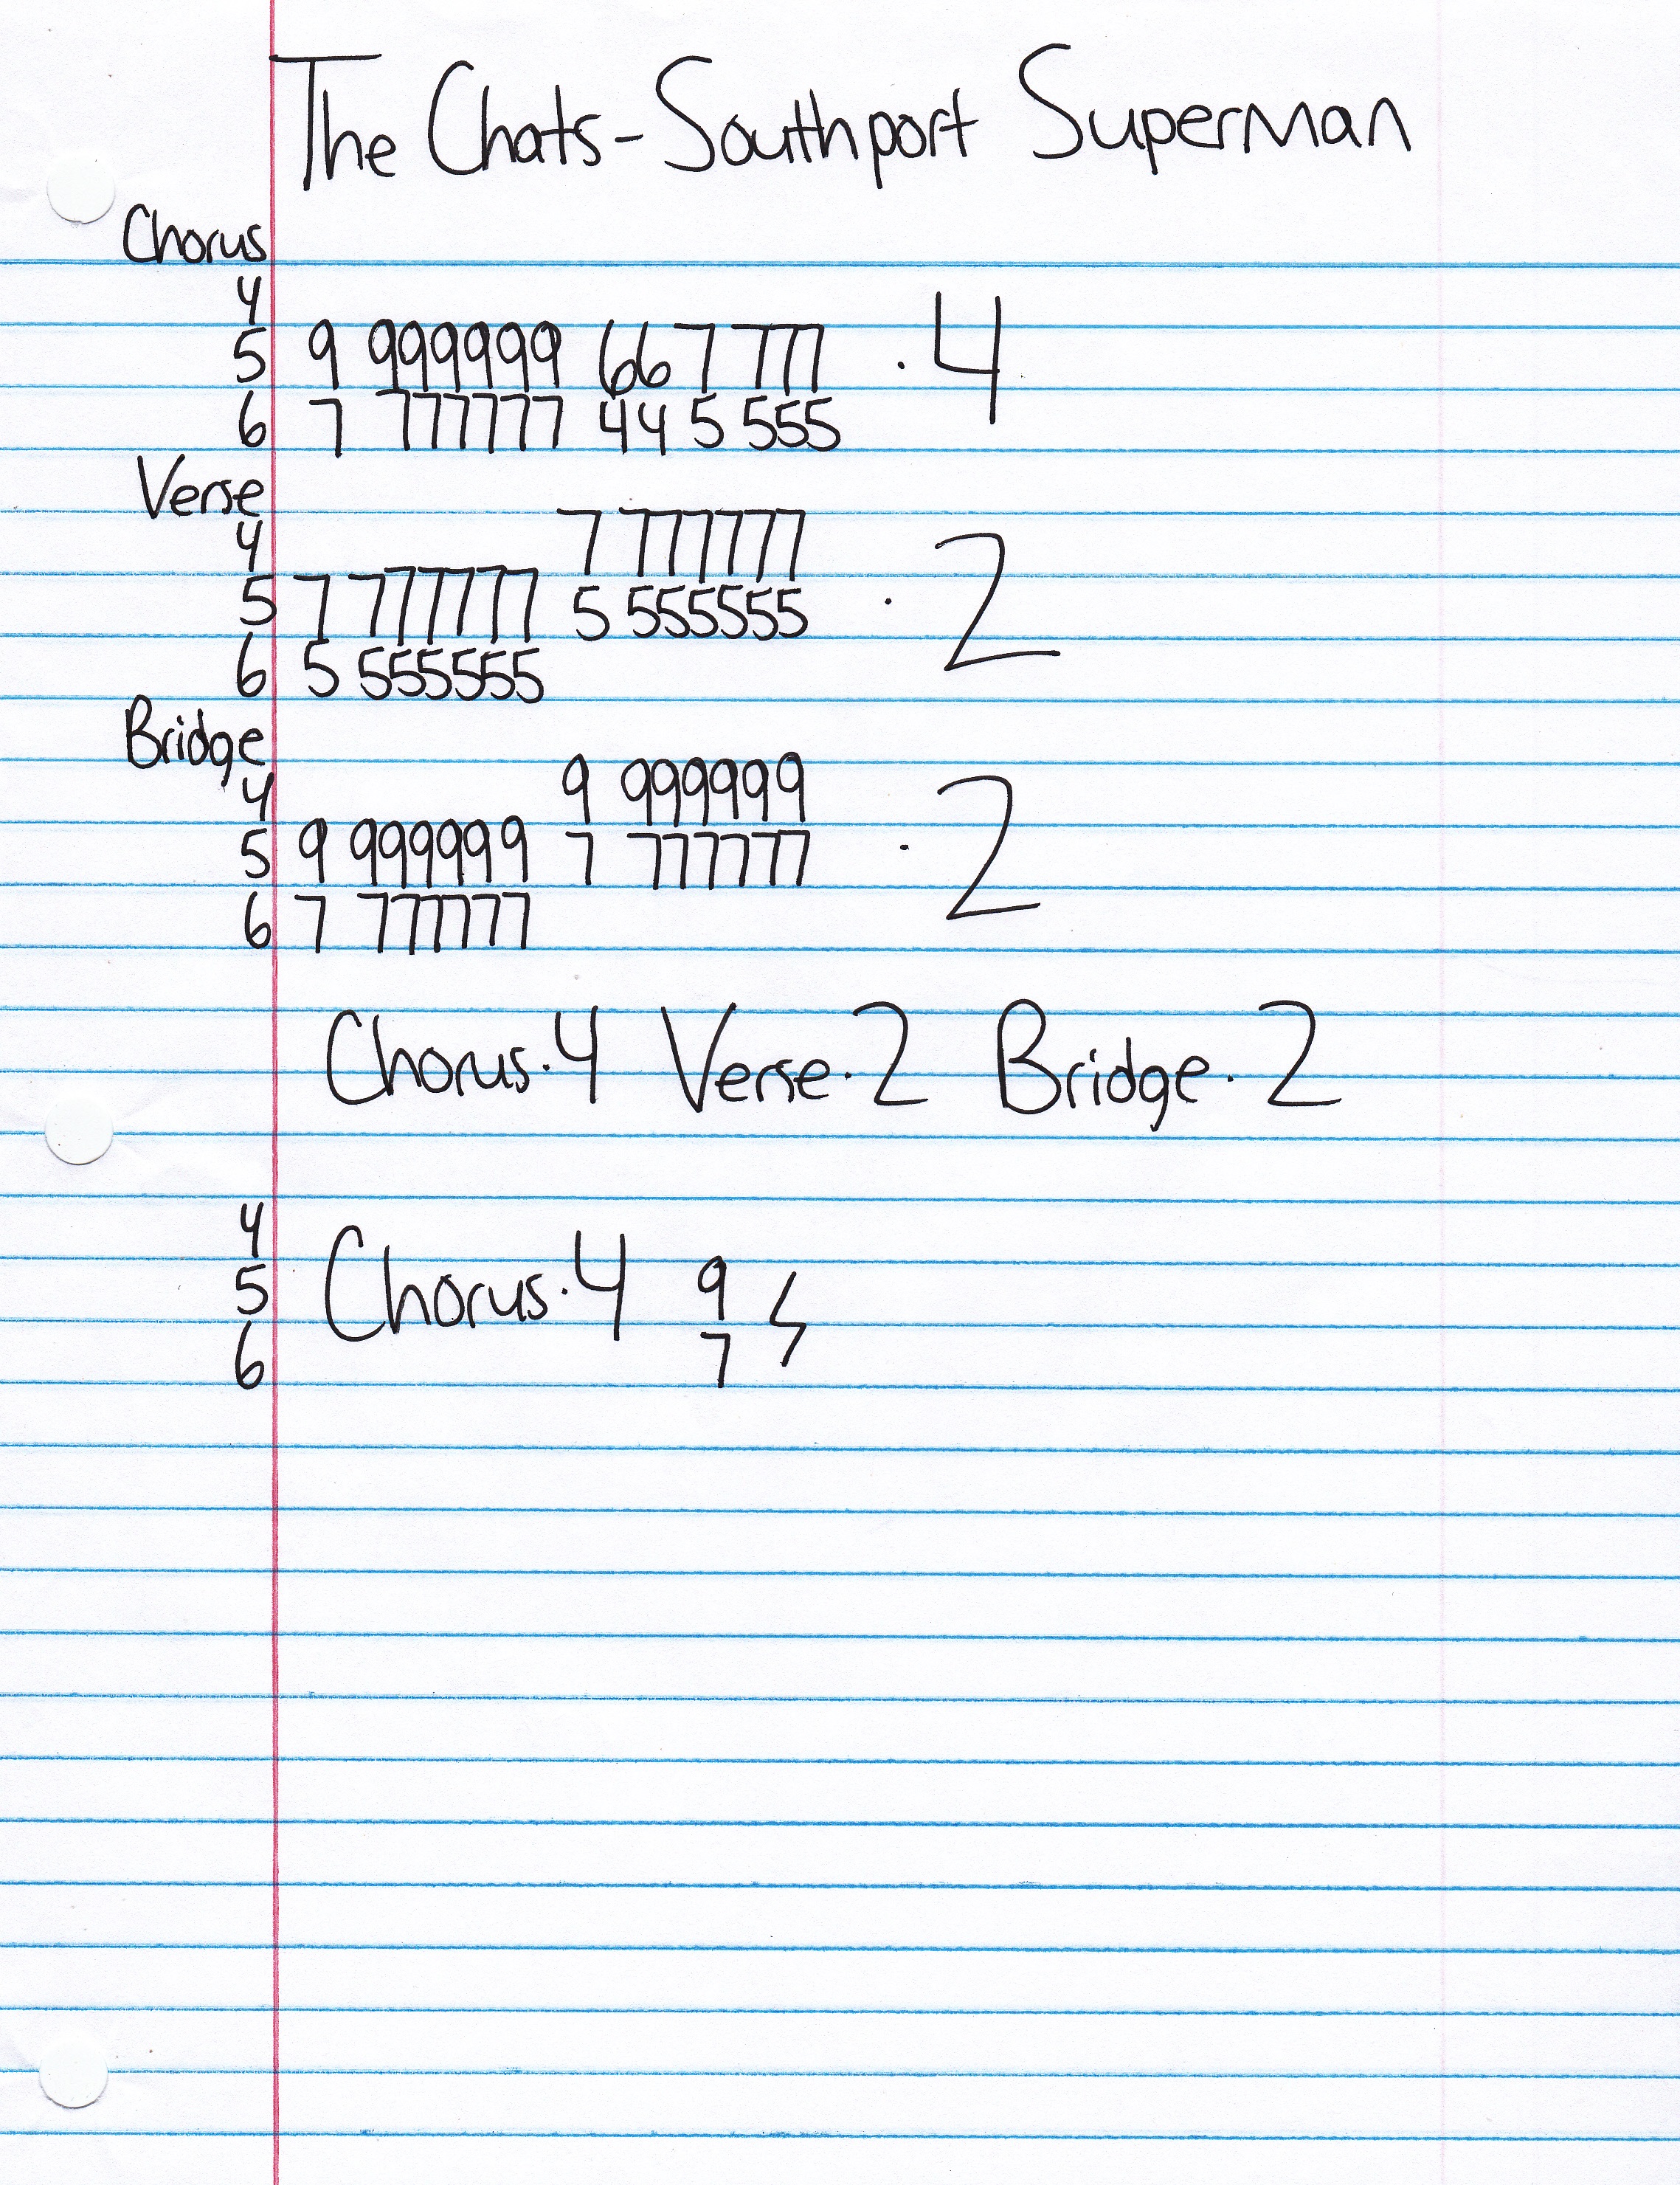 The Chats - Southport Superman
Chorus
4
5 9 999999 667 777 · 4
6 7 777777 445 555
Verse
4 7 777777
5 7 777777 5 555555 · 2
6 5 555555
Bridge
4 9 999999
5 9 999999 7 777777 · 2
6 7 777777
Chorus·4 Verse·2 Bridge·2
4
5 Chorus·4 9
6 7